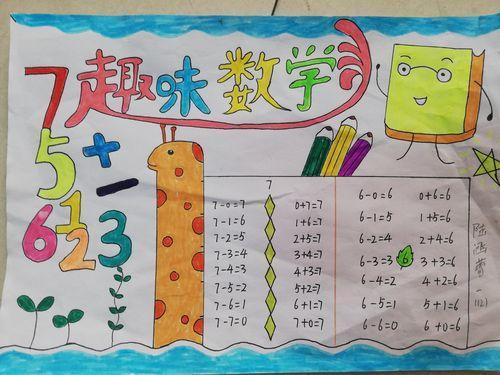 趣味数学
7
5
+
-
6
1
2
3
7
7-0=7 0+7=7
7-1=6 1+6=7
7-2=5 2+5=7
7-3=4 3+4=7
7-4=3 4+3=7
7-5=2 5+2=7
7-6=1 6+1=7
7-7=0 7+0=7
6-0=6 0+6=6
6-1=5 1+5=6
6-2=4 2+4=6
6-3=3 6 3+3=6
6-4=2 4+2=6
6-5=1 5+1=6
6-6=0 6+0=6